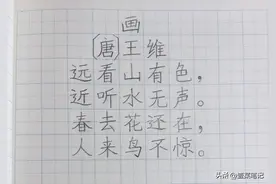 画
(唐)王维
远看山有色，
近听水无声。
春去花还在，
人来鸟不惊。
头条@萱苠笔记